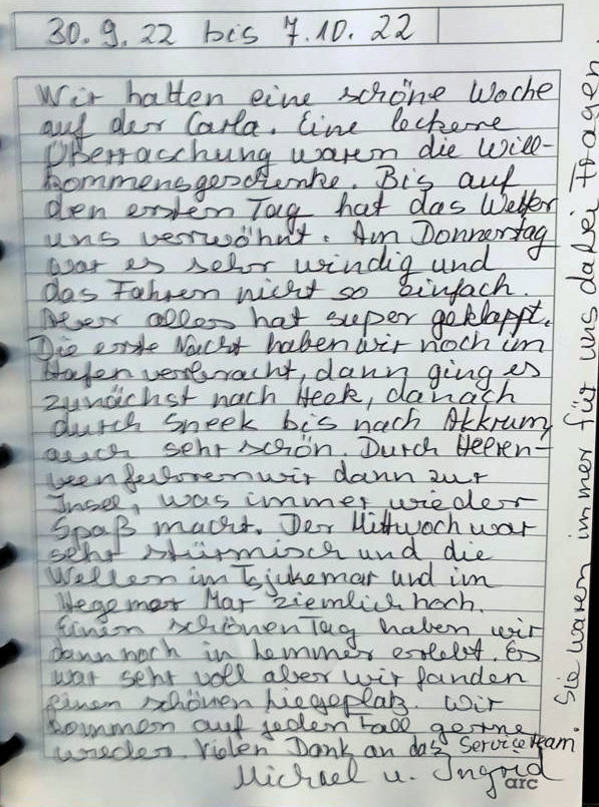 30.9.22 bis 7.10.22
Wir hatten eine schöne Woche
auf der Carla. Eine leckere
Überraschung waren die Will-
kommensgeschenke. Bis auf
den ersten Tag hat das Wetter
uns verwöhnt. Am Donnertag
war es sehr windig und
das Fahren nicht so einfach.
Aber alles hat super geklappt.
Die erste Nacht haben wir noch im
Hafen verbracht, dann ging es
zunächst nach Heek, danach
durch Sneek bis nach Akkrum,
auch sehr schön. Durch Heeren-
veen fuhren wir dann zur
Insel, was immer wieder
Spaß macht. Der Mittwoch war
sehr stürmisch und die
Wellen im Tsjukemar und im
Hegemer Mar ziemlich hoch.
Einen schönen Tag haben wir
dann noch in Lemmer erlebt. Es
war sehr voll aber wir fanden
einen schönen Liegeplatz. Wir
kommen auf jeden Fall gerne
wieder. Vielen Dank an das Serviceteam.
Sie waren immer für uns da bei Fragen.
Michael u. Ingrid
arc